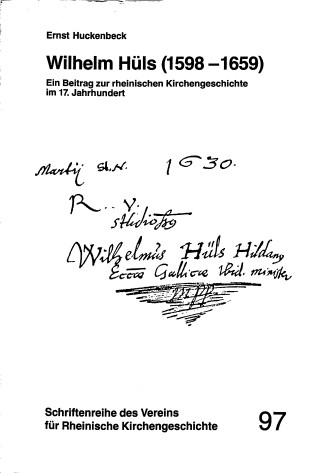 Ernst Huckenbeck
Wilhelm Hüls (1598 – 1659)
Ein Beitrag zur rheinischen Kirchengeschichte
im 17. Jahrhundert
Martij st. N. 1630.
R. . V.
studioso
Wilhelmus Hüls Hildang
Eccae Gallicae ibid. minister
mpp.
Schriftenreihe des Vereins
für Rheinische Kirchengeschichte 97